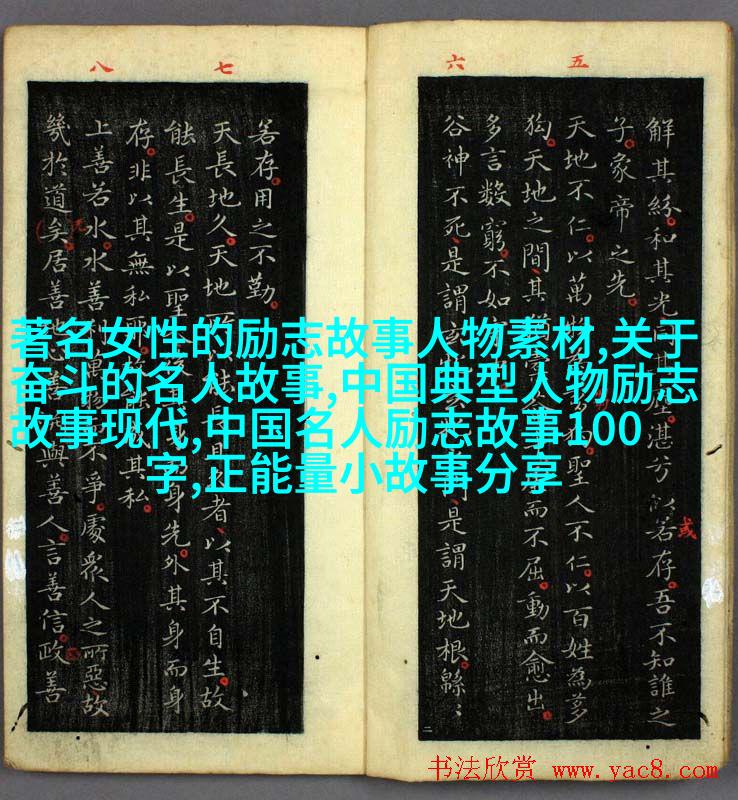 五
六
七
八
解其紛和其光其塵湛兮似若存吾不知誰之
或
子象帝之先
天地不仁以萬聖人不仁以百姓為芻
狗天地之間其而不屈動而愈出
多言數窮不如
谷神不死是謂門是謂天地根緜〻
若存用之不勤
天長地久天地能長且者以其不自生故
能長生是以聖身先外其身而身
存非以其無私其私
上善若水水善不爭處衆人之所惡故
幾於道矣居善與善人言善信政善
著名女性的励志故事人物素材,关于
奋斗的名人故事,中国典型人物励志
故事现代,中国名人励志故事100
字,正能量小故事分享
二
书法欣赏 www.yac8.com